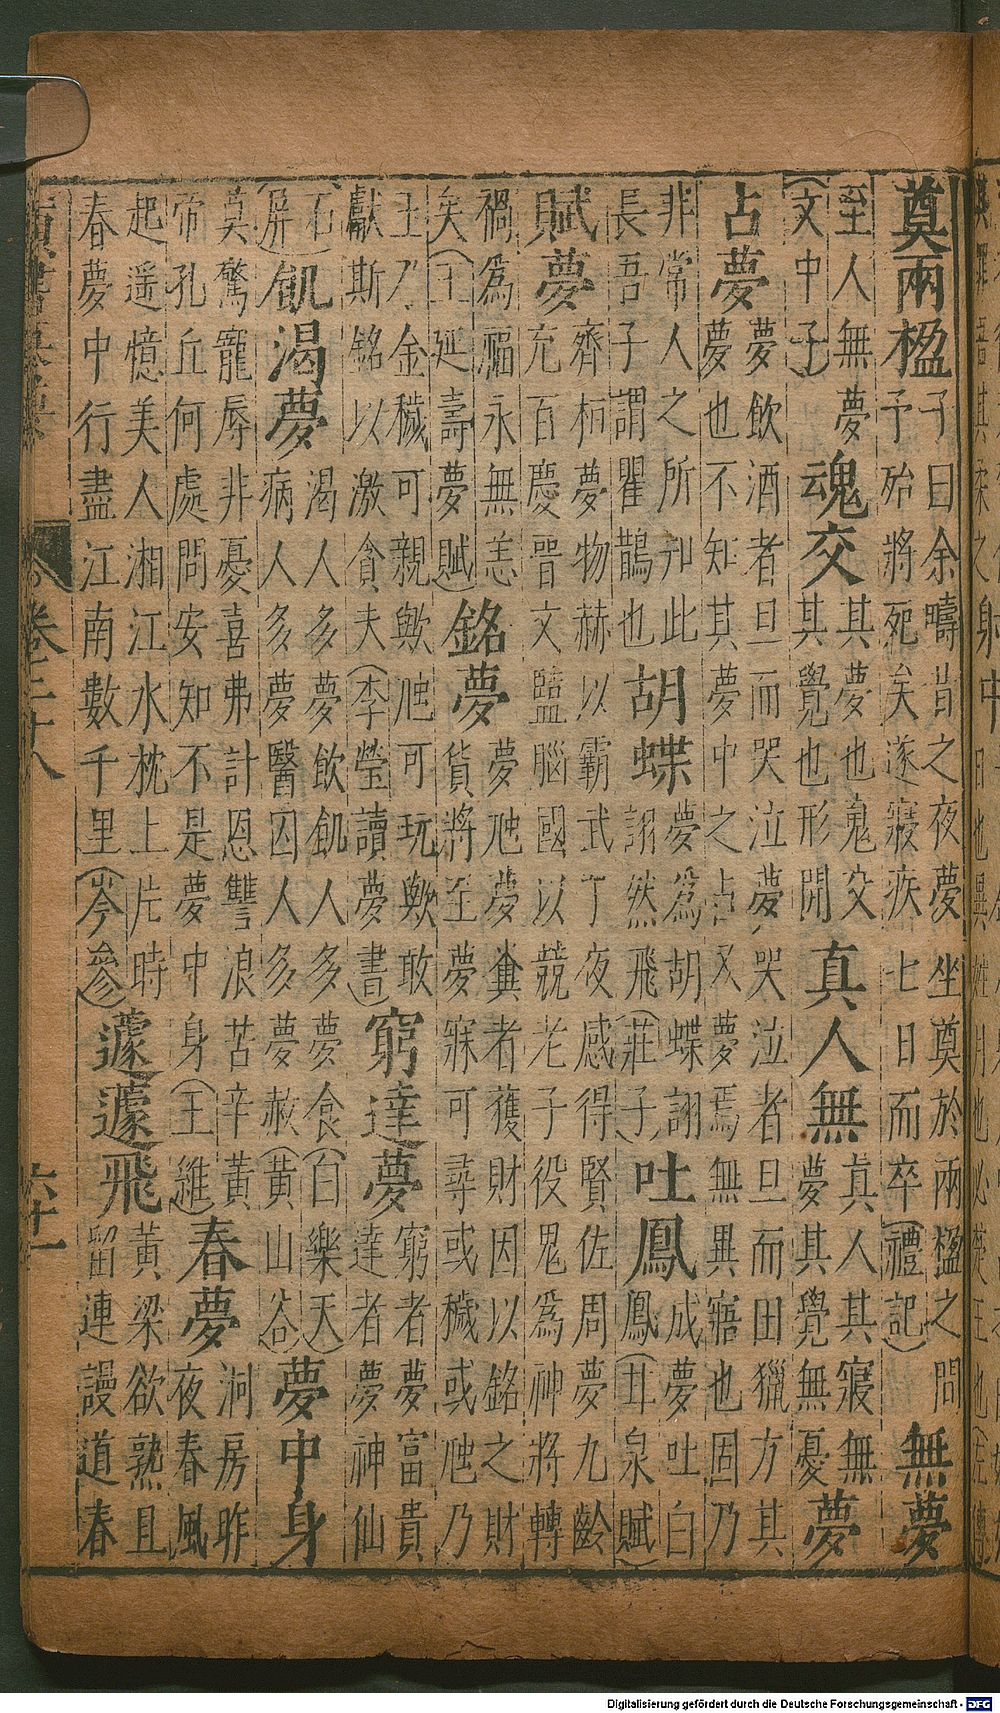 奠兩楹
子曰余疇昔之夜夢坐奠於兩楹之間
予殆將死矣遂寢疾七日而卒(禮記)
無夢
至人無夢
(文中子)
魂交
其夢也䰟交
其覺也形開
真人無
真人其寢無
夢其覺無憂
夢
占夢
夢飲酒者旦而哭泣夢哭泣者旦而田獵方其
夢也不知其夢中之占又夢焉無異寤也固乃
非常人之所知此
長吾子謂瞿鵲也
胡蝶
夢為胡蝶詡
詡然飛(莊子)
吐鳳
成夢吐白
鳳(甘泉賦)
賦夢
齊桓夢物赫以霸武丁夜感得賢佐周夢九齡
充百慶晉文盬腦國以競老子役鬼為神將轉
禍為福永無恙
矣(王延壽夢賦)
銘夢
夢虺夢糞者獲財因以銘之財
貨將至夢寐可尋或穢或虺乃
玉乃金穢可親歟虺可玩歟敢
獻斯銘以激貪夫(李瑩讀夢書)
窮達夢
窮者夢富貴
達者夢神仙
(石
屏)
飢渴夢
渴人多夢飲飢人多夢食(白樂天)
病人多夢醫囚人多夢赦(黄山谷)
夢中身
莫驚寵辱非憂喜弗計恩讐浪苦辛黄
帝孔丘何處問安知不是夢中身(王維)
春夢
洞房昨
夜春風
起遥憶美人湘江水枕上片時
春夢中行盡江南數千里(岑參)
蘧蘧飛
黄粱欲熟且
留連謾道春
卷二十八
六十一
Digitalisierung gefördert durch die Deutsche Forschungsgemeinschaft - DFG